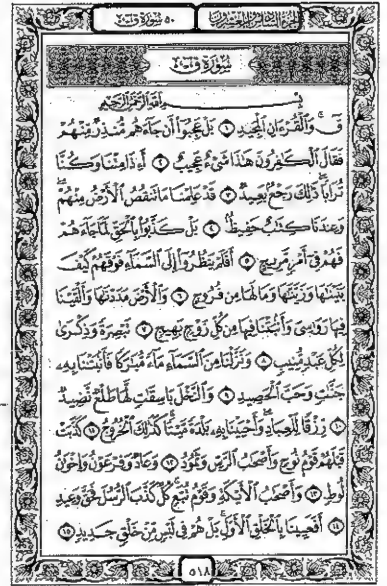 الجزء السادس والعشرون
٥٠ سورة ق
سُورَةُ قٓ
بِسْمِ ٱللَّهِ ٱلرَّحْمَٰنِ ٱلرَّحِيمِ
قٓ ۚ وَٱلْقُرْءَانِ ٱلْمَجِيدِ ١ بَلْ عَجِبُوٓا۟ أَن جَآءَهُم مُّنذِرٌ مِّنْهُمْ
فَقَالَ ٱلْكَٰفِرُونَ هَٰذَا شَىْءٌ عَجِيبٌ ٢ أَءِذَا مِتْنَا وَكُنَّا
تُرَابًا ۖ ذَٰلِكَ رَجْعٌۢ بَعِيدٌ ٣ قَدْ عَلِمْنَا مَا تَنقُصُ ٱلْأَرْضُ مِنْهُمْ ۖ
وَعِندَنَا كِتَٰبٌ حَفِيظٌۢ ٤ بَلْ كَذَّبُوا۟ بِٱلْحَقِّ لَمَّا جَآءَهُمْ
فَهُمْ فِىٓ أَمْرٍ مَّرِيجٍ ٥ أَفَلَمْ يَنظُرُوٓا۟ إِلَى ٱلسَّمَآءِ فَوْقَهُمْ كَيْفَ
بَنَيْنَٰهَا وَزَيَّنَّٰهَا وَمَا لَهَا مِن فُرُوجٍ ٦ وَٱلْأَرْضَ مَدَدْنَٰهَا وَأَلْقَيْنَا
فِيهَا رَوَٰسِىَ وَأَنۢبَتْنَا فِيهَا مِن كُلِّ زَوْجٍۭ بَهِيجٍ ٧ تَبْصِرَةً وَذِكْرَىٰ
لِكُلِّ عَبْدٍ مُّنِيبٍ ٨ وَنَزَّلْنَا مِنَ ٱلسَّمَآءِ مَآءً مُّبَٰرَكًا فَأَنۢبَتْنَا بِهِۦ
جَنَّٰتٍ وَحَبَّ ٱلْحَصِيدِ ٩ وَٱلنَّخْلَ بَاسِقَٰتٍ لَّهَا طَلْعٌ نَّضِيدٌ
١٠ رِّزْقًا لِّلْعِبَادِ ۖ وَأَحْيَيْنَا بِهِۦ بَلْدَةً مَّيْتًا ۚ كَذَٰلِكَ ٱلْخُرُوجُ ١١ كَذَّبَتْ
قَبْلَهُمْ قَوْمُ نُوحٍ وَأَصْحَٰبُ ٱلرَّسِّ وَثَمُودُ ١٢ وَعَادٌ وَفِرْعَوْنُ وَإِخْوَٰنُ
لُوطٍ ١٣ وَأَصْحَٰبُ ٱلْأَيْكَةِ وَقَوْمُ تُبَّعٍ ۚ كُلٌّ كَذَّبَ ٱلرُّسُلَ فَحَقَّ وَعِيدِ
١٤ أَفَعَيِينَا بِٱلْخَلْقِ ٱلْأَوَّلِ ۚ بَلْ هُمْ فِى لَبْسٍ مِّنْ خَلْقٍ جَدِيدٍ ١٥
٥١٨